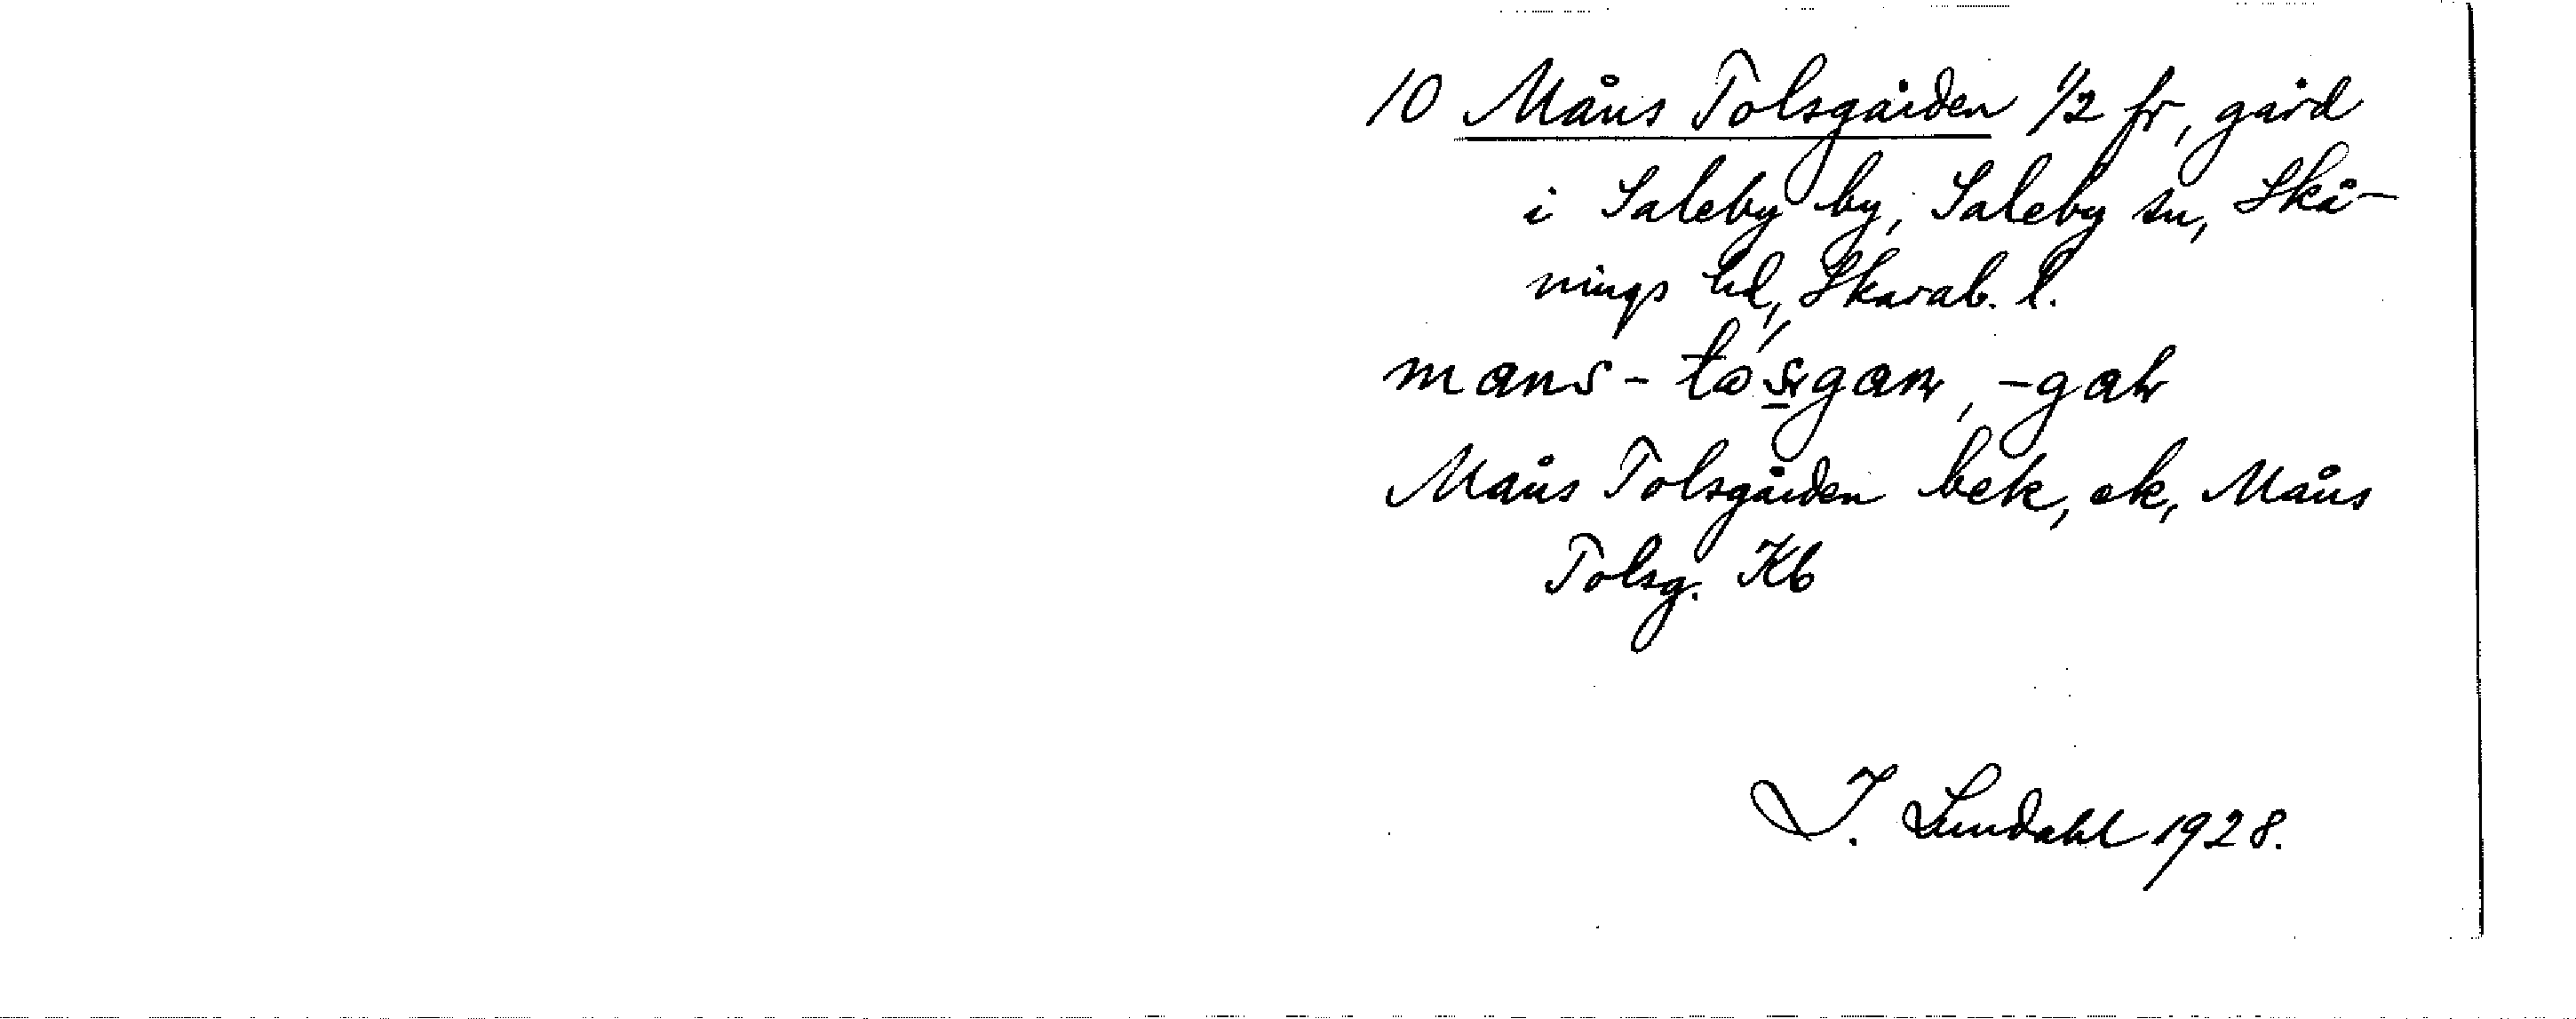 10 Måns Tolsgården 1/2 fr, gård
i Saleby by, Saleby sn, Skå-
nings hd, Skarab. l.
Måns Tolsgården bek, ek, Måns
Tolsg. Kb
I. Lundahl 1928.